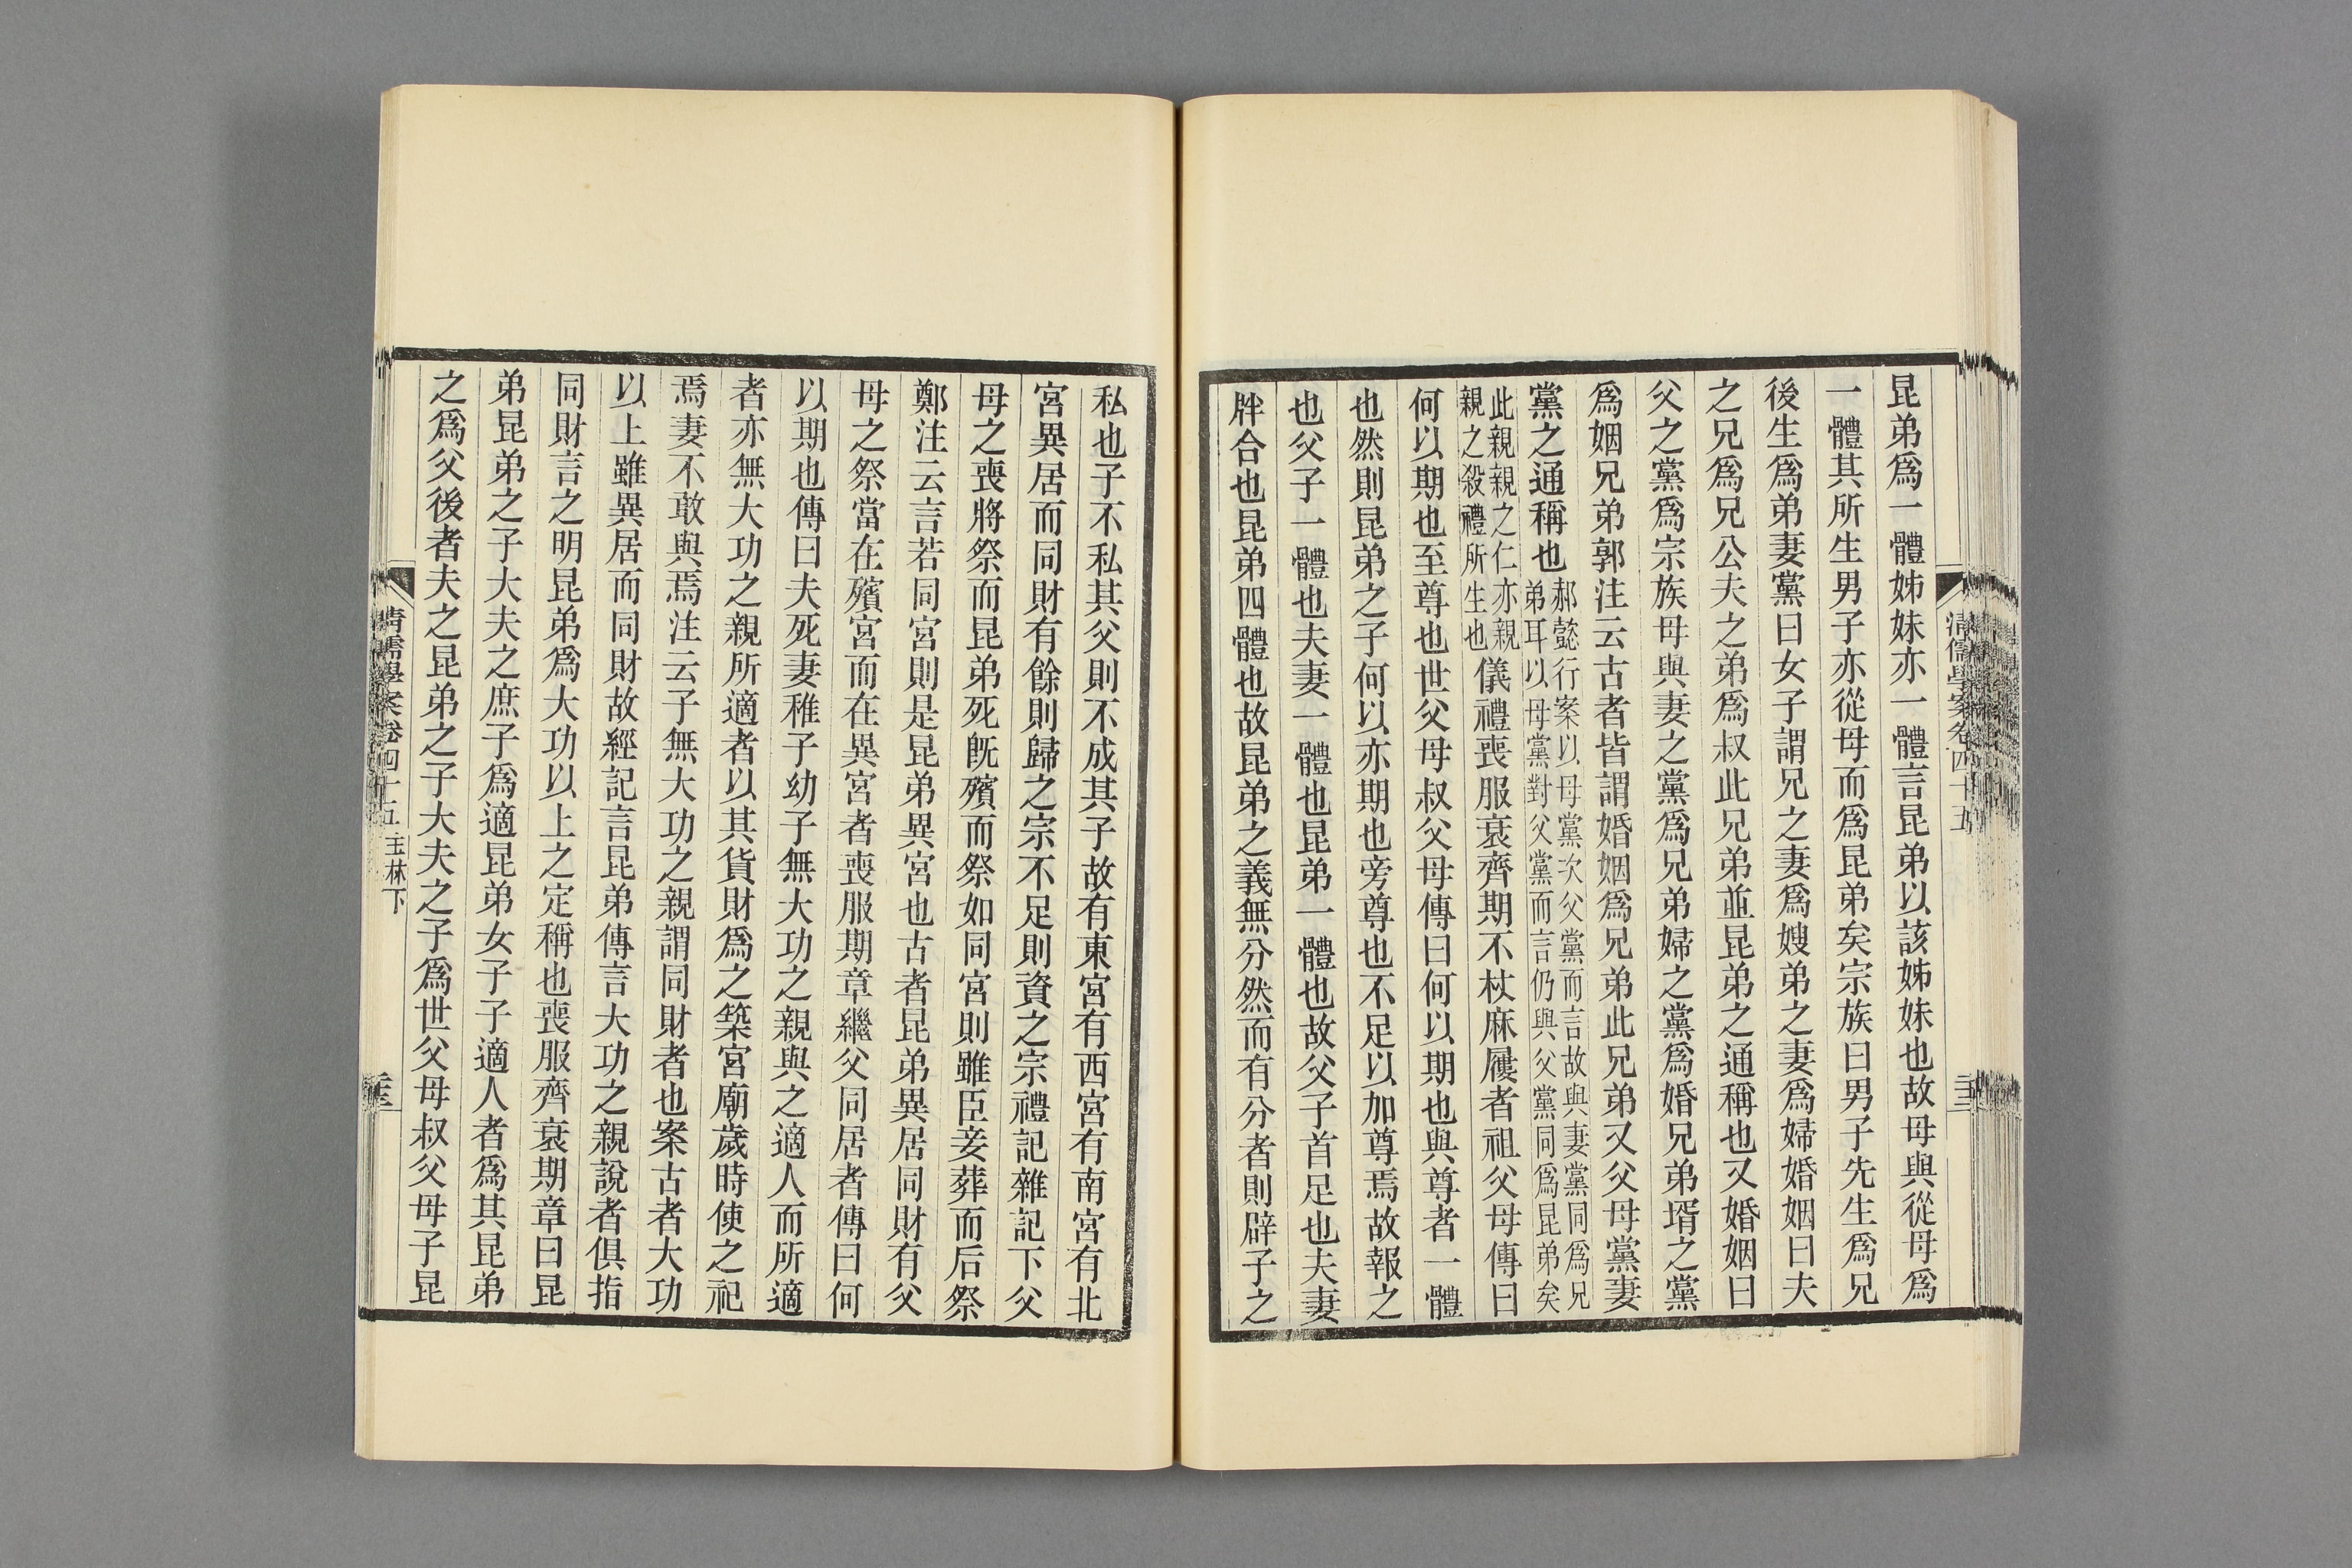 昆弟爲一體姊妹亦一體言昆弟以該姊妹也故母與從母爲
一體其所生男子亦從母而爲昆弟矣宗族曰男子先生爲兄
後生爲弟妻黨曰女子謂兄之妻爲嫂弟之妻爲婦婚姻曰夫
之兄爲兄公夫之弟爲叔此兄弟並昆弟之通稱也又婚姻曰
父之黨爲宗族母與妻之黨爲兄弟婦之黨爲婚兄弟壻之黨
爲姻兄弟郭注云古者皆謂婚姻爲兄弟此兄弟又父母黨妻
黨之通稱也
郝懿行案以母黨次父黨而言故與妻黨同爲兄
弟耳以母黨對父黨而言仍與父黨同爲昆弟矣
此親親之仁亦親
親之殺禮所生也
儀禮喪服衰齊期不杖麻屨者祖父母傳曰
何以期也至尊也世父母叔父母傳曰何以期也與尊者一體
也然則昆弟之子何以亦期也旁尊也不足以加尊焉故報之
也父子一體也夫妻一體也昆弟一體也故父子首足也夫妻
牉合也昆弟四體也故昆弟之義無分然而有分者則辟子之
私也子不私其父則不成其子故有東宮有西宮有南宮有北
宮異居而同財有餘則歸之宗不足則資之宗禮記雜記下父
母之喪將祭而昆弟死旣殯而祭如同宮則雖臣妾葬而后祭
鄭注云言若同宮則是昆弟異宮也古者昆弟異居同財有父
母之祭當在殯宮而在異宮者喪服期章繼父同居者傳曰何
以期也傳曰夫死妻稚子幼子無大功之親與之適人而所適
者亦無大功之親所適者以其貨財爲之築宮廟歲時使之祀
焉妻不敢與焉注云子無大功之親謂同財者也案古者大功
以上雖異居而同財故經記言昆弟傳言大功之親說者俱指
同財言之明昆弟爲大功以上之定稱也喪服齊衰期章曰昆
弟昆弟之子大夫之庶子爲適昆弟女子子適人者爲其昆弟
之爲父後者夫之昆弟之子大夫之子爲世父母叔父母子昆
清儒學案卷四十五 玉林下